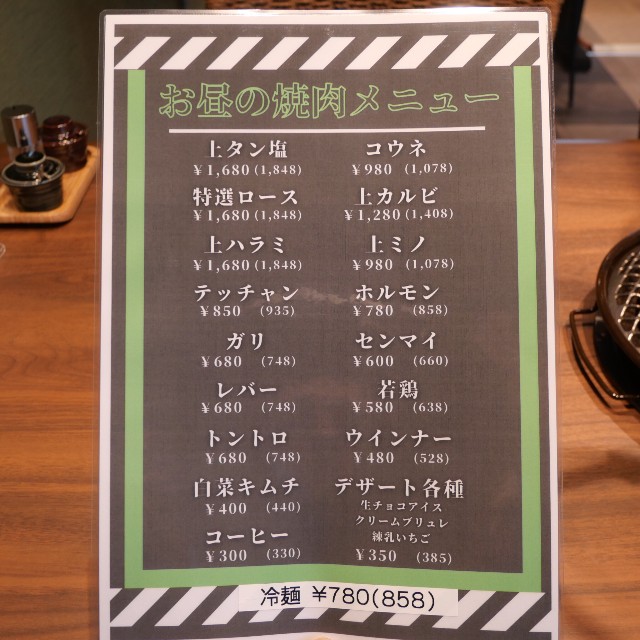 お昼の焼肉メニュー
上タン塩
¥1,680(1,848)
コウネ
¥980 (1,078)
特選ロース
¥1,680(1,848)
上カルビ
¥1,280(1,408)
上ハラミ
¥1,680(1,848)
上ミノ
¥980 (1,078)
テッチャン
¥850 (935)
ホルモン
¥780 (858)
ガリ
¥680 (748)
センマイ
¥600 (660)
レバー
¥680 (748)
若鶏
¥580 (638)
トントロ
¥680 (748)
ウインナー
¥480 (528)
白菜キムチ
¥400 (440)
デザート各種
生チョコアイス
クリームブリュレ
練乳いちご
¥350 (385)
コーヒー
¥300 (330)
冷麺 ¥780(858)